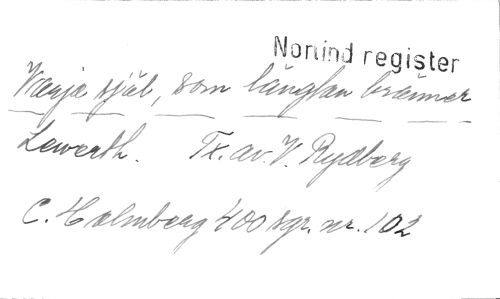 Norlind register
Varja själ, som längtan bränner
Lewerth. Tx. av. V. Rydberg
C. Holmberg 400 sgr. nr. 102